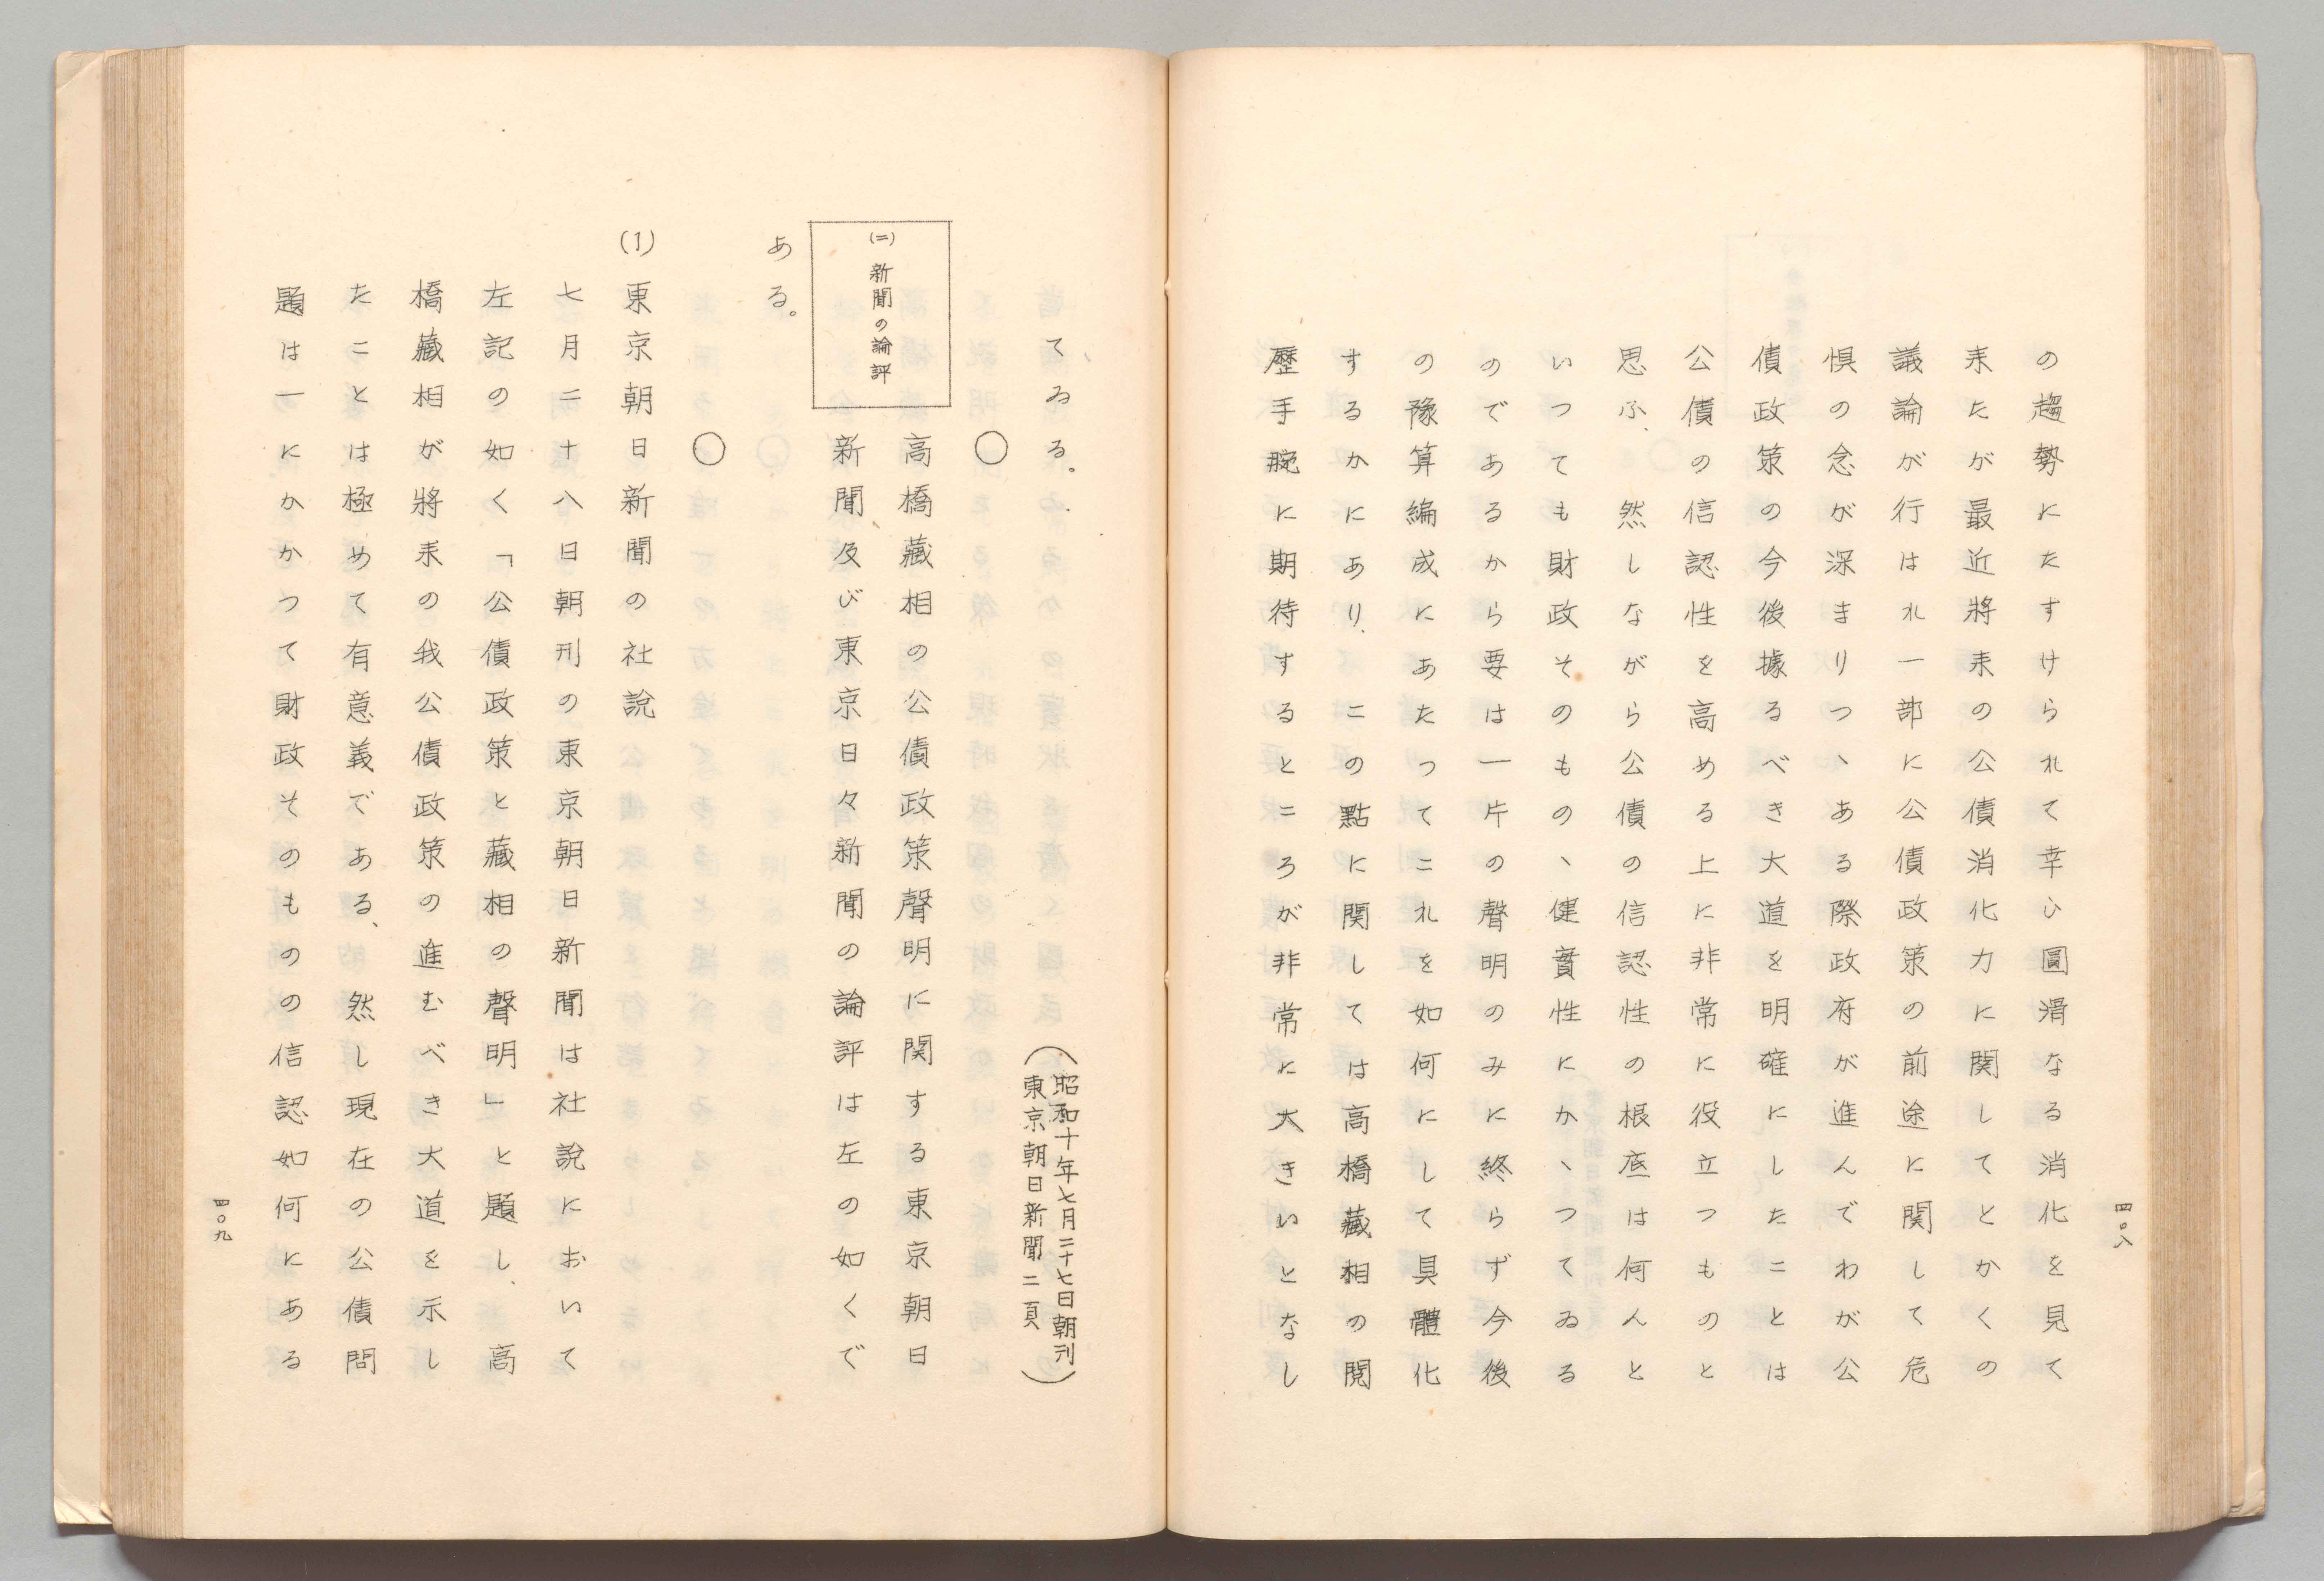 四〇八
の趨勢にたすけられて幸ひ圓滑なる消化を見て
来たが最近將来の公債消化力に関してとかくの
議論が行はれ一部に公債政策の前途に関して危
惧の念が深まりつヽある際政府が進んでわが公
債政策の今後據るべき大道を明確にしたことは
公債の信認性を高める上に非常に役立つものと
思ふ、然しながら公債の信認性の根底は何んと
いつても財政そのものヽ健實性にかヽつてゐる
のであるから要は一片の聲明のみに終らず今後
の豫算編成にあたつてこれを如何にして具體化
するかにあり、この點に関しては高橋藏相の閲
歷手腕に期待するところが非常に大きいとなし
てゐる。
(昭和十年七月二十七日朝刊
東京朝日新聞二頁)
〇
(二)新聞の論評
高橋藏相の公債政策聲明に関する東京朝日
新聞及び東京日々新聞の論評は左の如くで
ある。
〇
(1)東京朝日新聞の社説
七月二十八日朝刊の東京朝日新聞は社説において
左記の如く「公債政策と藏相の聲明」と題し、高
橋藏相が將来の我公債政策の進むべき大道を示し
たことは極めて有意義である、然し現在の公債問
題は一にかかつて財政そのものの信認如何にある
四〇九